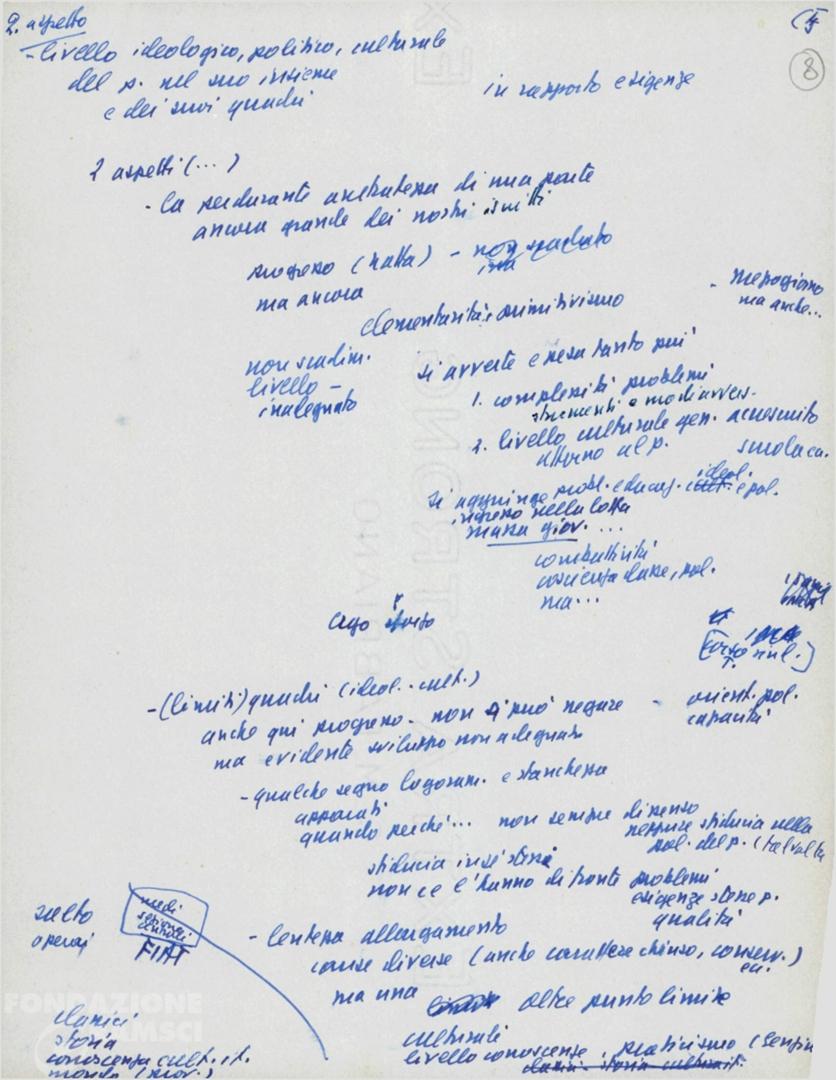 2. aspetto
(5
8
- livello ideologico, politico, culturale
del p. nel suo insieme
e dei suoi quadri
in rapporto esigenze
2 aspetti (...)
- la perdurante arretratezza di una parte
ancora grande dei nostri iscritti
progresso (Natta) - non scaduto
ma ancora
- Mezzogiorno
ma anche...
elementarità e primitivismo
non scadim.
livello -
inadeguato
si avverte e pesa tanto più
1. complessità problemi
strumenti e modi avvers.
2. livello culturale gen. accresciuto
attorno al p.
si aggiunge probl. educaz. ideol. e pol.
ingresso nella lotta
massa giov. ...
combattività
coscienza classe, pol.
ma...
- (limiti) quadri (ideol. cult.)
anche qui progresso - non si può negare
ma evidente sviluppo non adeguato
- orient. pol.
capacità
- qualche segno logoram. e stanchezza
apparati
quando perché... non sempre dipenso
neppure sfiducia nella
pol. del p. (talvolta
sfiducia in sé stessi
non ce l'hanno di fronte problemi
esigenze stesse p.
qualità
- lentezza allargamento
cause diverse (anche carattere chiuso, conserv.)
ma una
oltre punto limite
salto
operai
medi
sezione
centrali
FIAT
classici
storia
conoscenza cult. it.
mondo (prov.)
culturali
livello conoscenze, praticismo (senza
FONDAZIONE
GRAMSCI